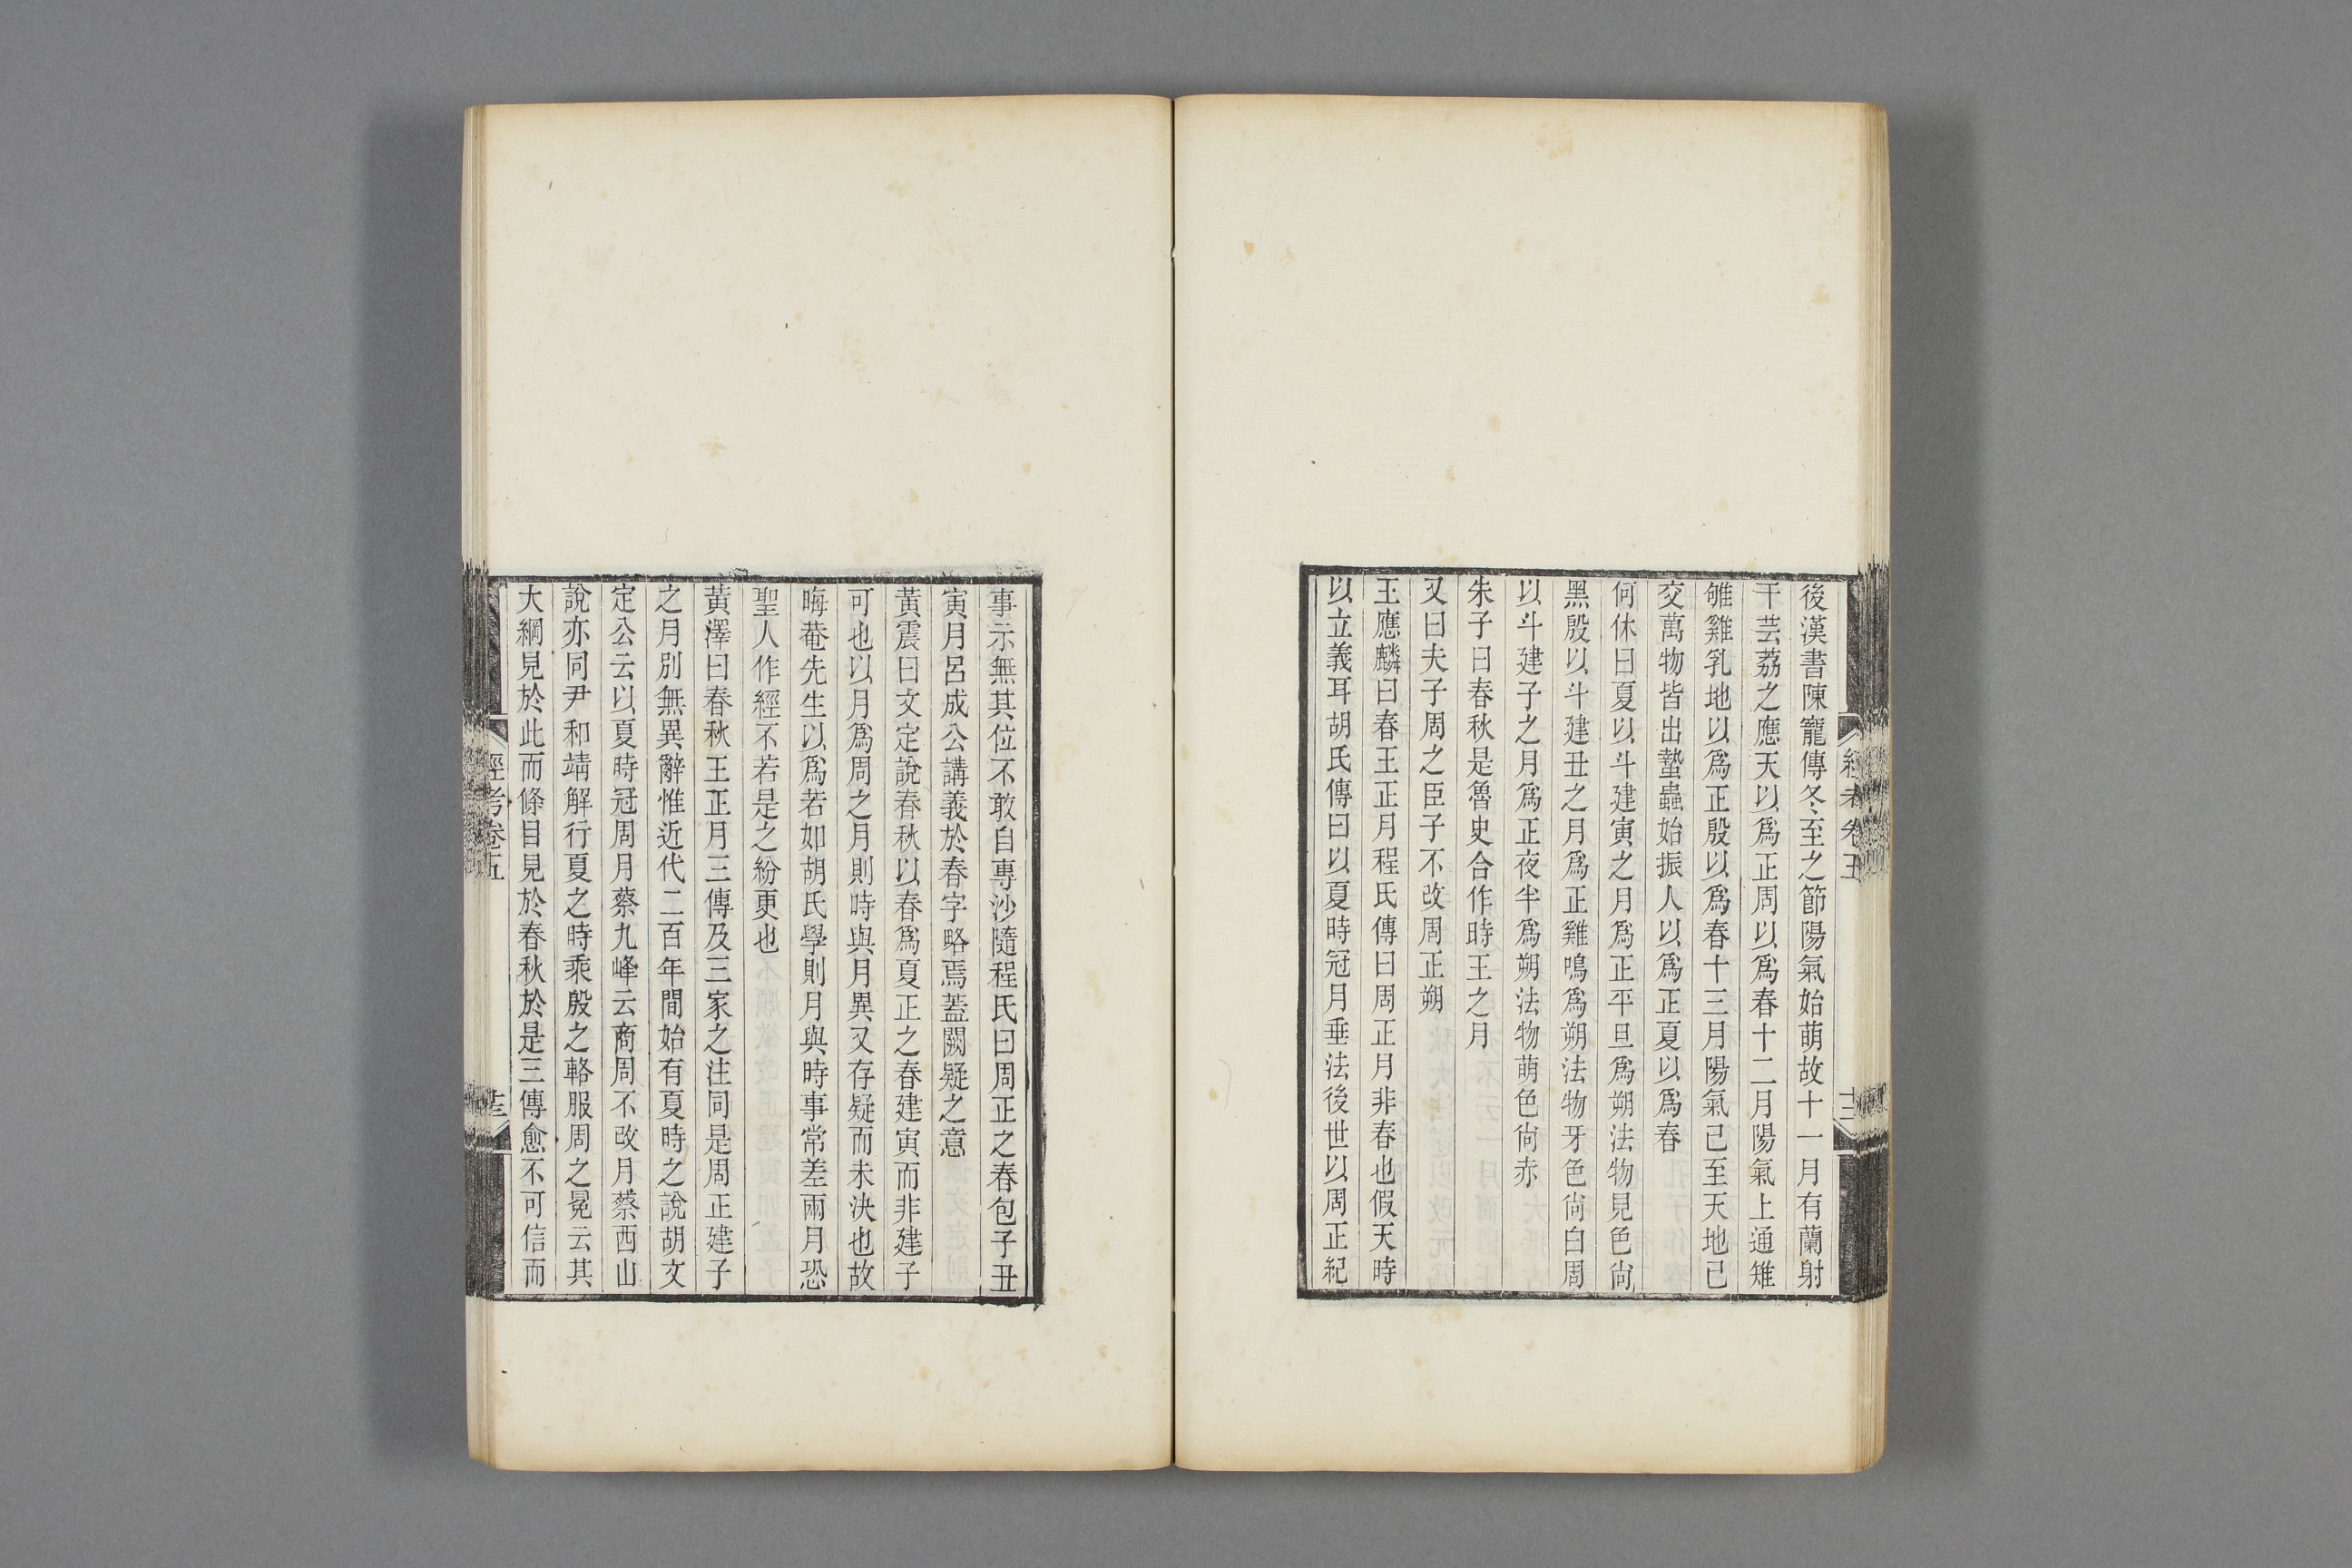 後漢書陳寵傳冬至之節陽氣始萌故十一月有蘭射
干芸荔之應天以爲正周以爲春十二月陽氣上通雉
雊雞乳地以爲正殷以爲春十三月陽氣已至天地已
交萬物皆出蟄蟲始振人以爲正夏以爲春
何休曰夏以斗建寅之月爲正平旦爲朔法物見色尙
黑殷以斗建丑之月爲正雞鳴爲朔法物牙色尙白周
以斗建子之月爲正夜半爲朔法物萌色尙赤
朱子曰春秋是魯史合作時王之月
又曰夫子周之臣子不改周正朔
王應麟曰春王正月程氏傳曰周正月非春也假天時
以立義耳胡氏傳曰以夏時冠月垂法後世以周正紀
事示無其位不敢自專沙隨程氏曰周正之春包子丑
寅月呂成公講義於春字略焉蓋闕疑之意
黃震曰文定說春秋以春爲夏正之春建寅而非建子
可也以月爲周之月則時與月異又存疑而未決也故
晦菴先生以爲若如胡氏學則月與時事常差兩月恐
聖人作經不若是之紛更也
黃澤曰春秋王正月三傳及三家之注同是周正建子
之月別無異辭惟近代二百年間始有夏時之說胡文
定公云以夏時冠周月蔡九峰云商周不改月蔡西山
說亦同尹和靖解行夏之時乘殷之輅服周之冕云其
大綱見於此而條目見於春秋於是三傳愈不可信而
經考卷五